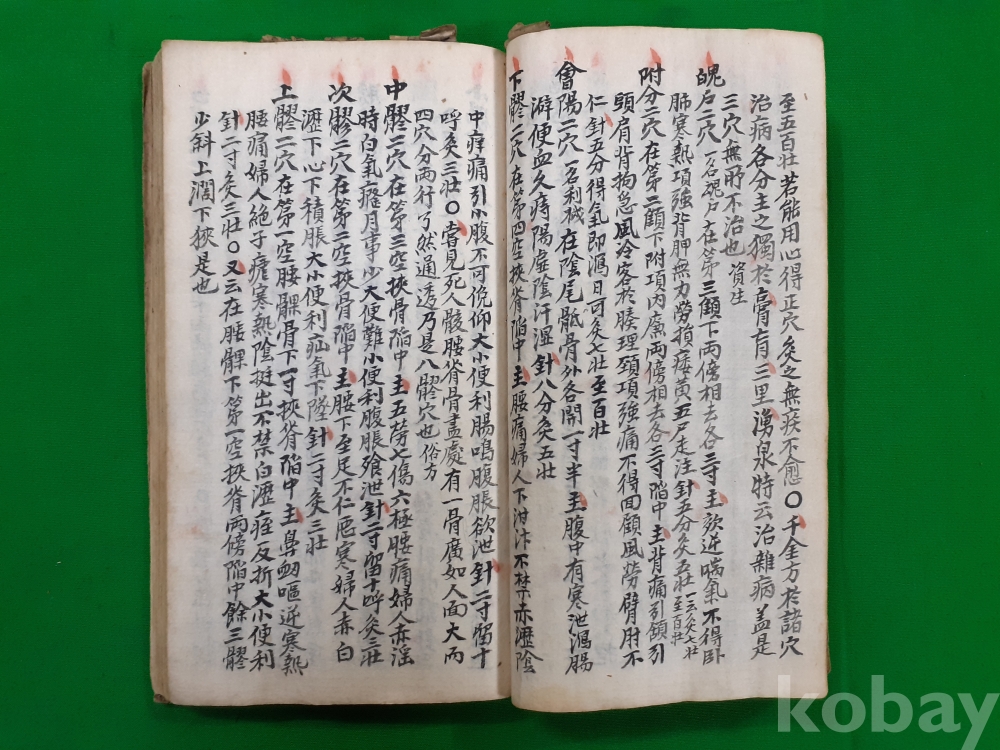 至五百壯若能用心得正穴灸之無疾不愈○千金方於諸穴
治病各分主之獨於膏肓三里湧泉特云治雜病盖是
三穴無所不治也資生
魄戶二穴一名魂戶在第三顀下兩傍相去各三寸主欬逆喘氣不得臥
肺寒熱項強背胛無力勞損痿黃五尸走注針五分灸五壯一云灸七壯至百壯
附分二穴在第二顀下附項內廉兩傍相去各三寸陷中主背痛引頷引
頭肩背拘急風冷客於腠理頚項強痛不得回顧風勞臂肘不
仁針五分得氣即瀉日可灸七壯至百壯
會陽二穴一名利機在陰尾骶骨外各開一寸半主腹中有寒泄瀉腸
澼便血久痔陽虛陰汗濕針八分灸五壯
下髎二穴在第四空挾脊陷中主腰痛婦人下泔汴不禁赤瀝陰
中痒痛引小腹不可俛仰大小便利腸鳴腹脹欲泄針二寸留十
呼灸三壯○嘗見死人骸腰脊骨盡處有一骨廣如人面大而
四穴分兩行了然通透乃是八髎穴也俗方
中髎二穴在第三空挾骨陷中主五勞七傷六極腰痛婦人赤滛
時白氣癃月事少大便難小便利腹脹飱泄針二寸留十呼灸三壯
次髎二穴在第二空挾骨陷中主腰下至足不仁惡寒婦人赤白
瀝下心下積脹大小便利疝氣下墜針二寸灸三壯
上髎二穴在第一空腰髁骨下一寸挾脊陷中主鼻衂嘔逆寒熱
腰痛婦人絶子瘧寒熱陰挺出不禁白瀝痓反折大小便利
針二寸灸三壯○又云在腰髁下第一空挾脊兩傍陷中餘三髎
少斜上濶下挾是也
kobay